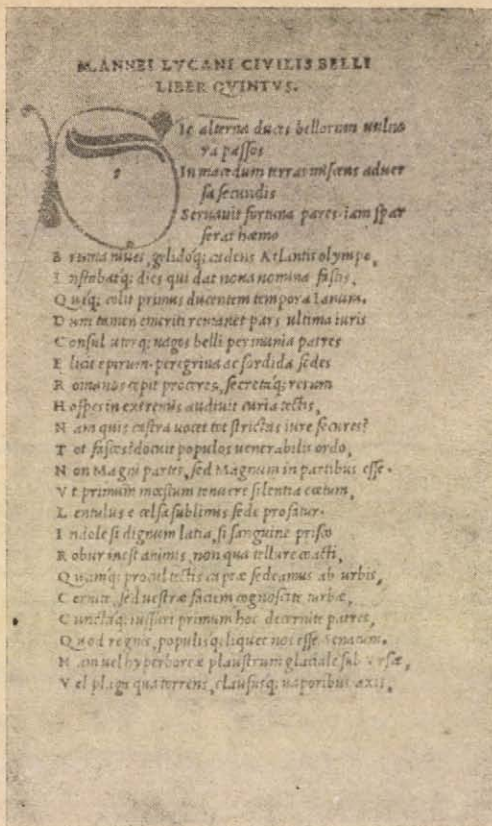 M. ANNEI LVCANI CIVILIS BELLI
LIBER QVINTVS.
Ic alterna duces bellorum uulne
ra passos
In macedum terras miscens aduer
sa secundis
Seruauit fortuna pares. iam spar
serat hæmo
B ruma niues, gelidoq; cadens Atlantis olympo,
I nstabatq; dies qui dat noua nomina fastis,
Q uiq; colit primus ducentem tempora Ianum.
D um tamen emeriti remanet pars ultima iuris
C onsul uterq; uagos belli per munia patres
E licit epirum. peregrina ac sordida sedes
R omanos cepit proceres, secretaq; rerum
H ospes in externis audiuit curia tectis,
N am quis castra uocet tot strictas iure secures?
T ot fasces? docuit populos uenerabilis ordo,
N on Magni partes, sed Magnum in partibus esse.
V t primum mœstum tenuere silentia cœtum,
L entulus e celsa sublimis sede profatur.
I ndole si dignum latia, si sanguine prisco
R obur inest animis, non qua tellure coacti,
Q uamq; procul tectis captæ sedeamus ab urbis,
C ernite, sed uestræ faciem cognoscite turbæ,
C unctaq; iussuri primum hoc decernite patres,
Q uod regnis, populisq; liquet nos esse Senatum.
N am uel hyperboreæ plaustrum glaciale sub Vrsæ,
V el plaga qua torrens, claususq; uaporibus axis,